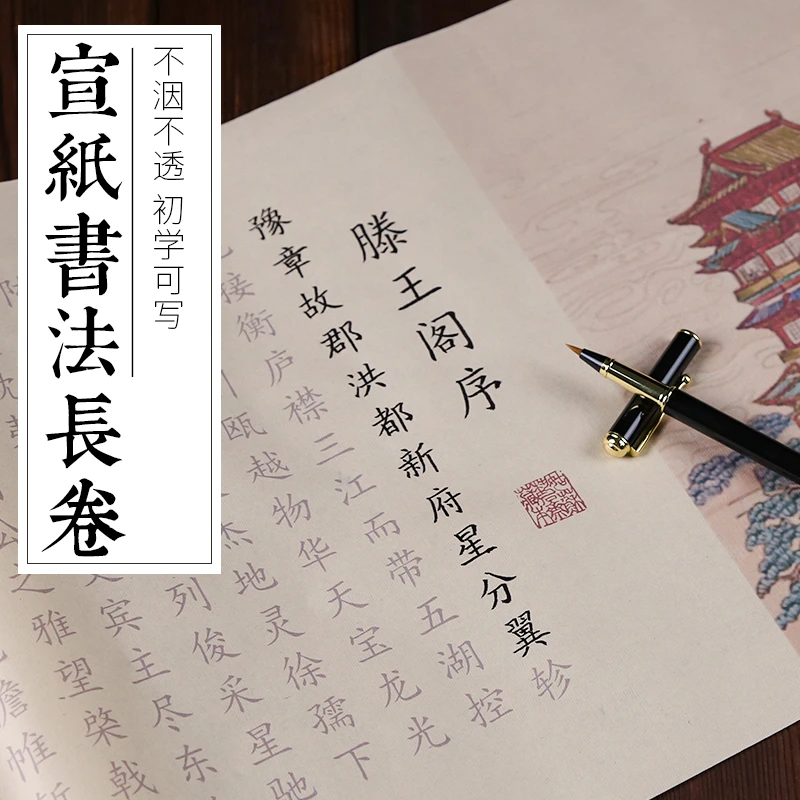 宣紙書法長卷
不洇不透 初学可写
滕王阁序
豫章故郡洪都新府星分翼轸
接衡庐襟三江而带五湖控
瓯越物华天宝龙光
杰地灵徐孺下
列俊采星驰
宾主尽东
之雅望棨戟
帷